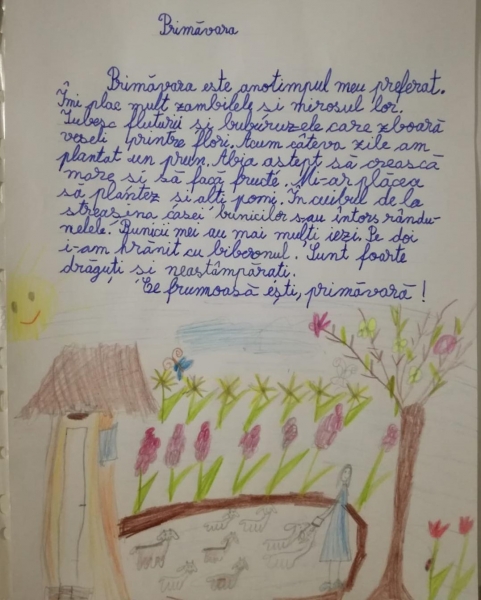 Primăvara
Primăvara este anotimpul meu preferat.
Îmi plac mult zambilele și mirosul lor.
Iubesc fluturii și buburuzele care zboară
veseli printre flori. Acum câteva zile am
plantat un prun. Abia aștept să crească
mare și să facă fructe. Mi-ar plăcea
să plantez și alți pomi. În cuibul de la
streașina casei bunicilor s-au întors rându-
nelele. Bunicii mei au mai mulți iezi. Pe doi
i-am hrănit cu biberonul. Sunt foarte
drăguți și neastâmpărați.
Ce frumoasă ești, primăvară!